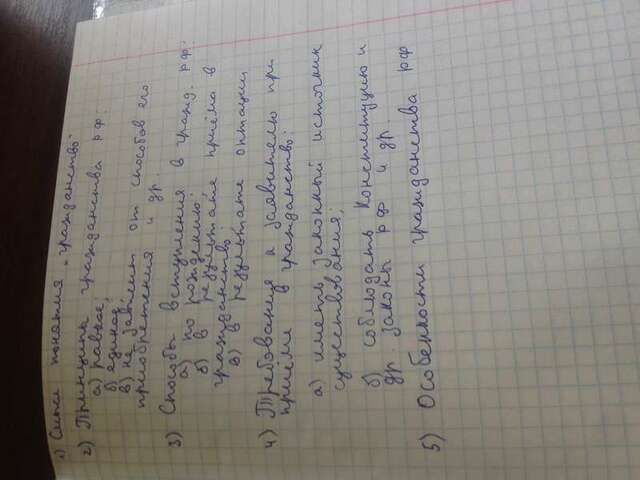 1) Смысл понятия „гражданство"
2) Принципы гражданства РФ:
а) равное;
б) единое;
в) не зависит от способов его
приобретения и др.
3) Способы вступления в гражд. РФ:
а) по рождению;
б) в результате приёма в
гражданство
в) в результате оптации;
4) Требования к заявителю при
приёме в гражданство:
а) иметь законный источник
существования;
б) соблюдать Конституцию и
др. законы РФ и др.
5) Особенности гражданства РФ